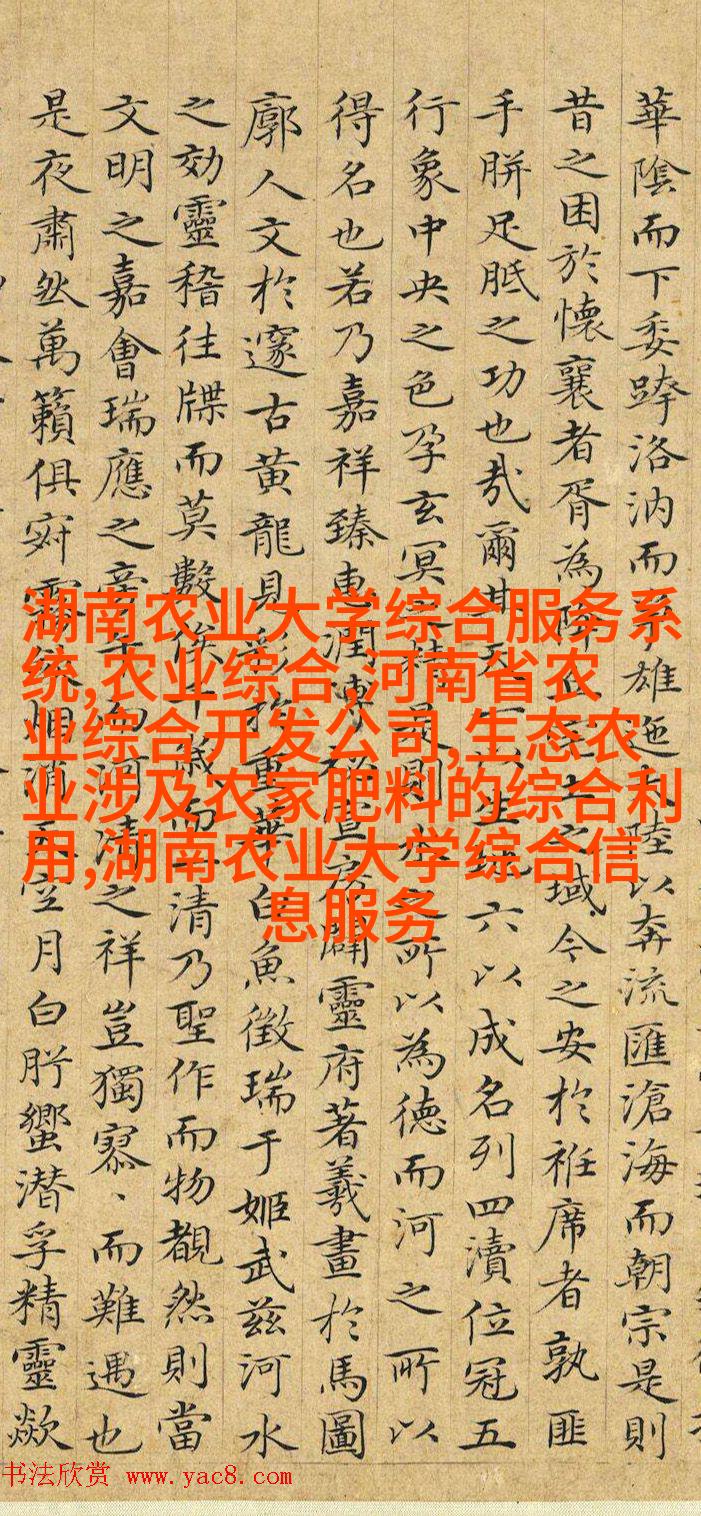 華陰而下委跨洛汭而 雄迤 陸以奔流匯滄海而朝宗是則
昔之困於懷襄者胥為降丘宅土之域今之安於袵席者孰匪
手胼足胝之功也哉爾其天一以生 六以成名列四瀆位冠五
行象中央之色孕玄冥 精是則水之所以為德而河之所以
得名也若乃嘉祥臻惠潤溥 靈府著羲畫於馬圖
廓人文於邃古黃龍見彩 重華白魚徵瑞于姬武茲河水
之効靈稽往牒而莫數俟千歲而一清乃聖作而物覩然則當
文明之嘉會瑞應之旁 河清之祥豈獨寡、而難遇也
是夜肅然萬籟俱寂霧 烟消 空月白肸蠁潜孚精靈歘
湖南农业大学综合服务系
统,农业综合,河南省农
业综合开发公司,生态农
业涉及农家肥料的综合利
用,湖南农业大学综合信
息服务
书法欣赏 www.yac8.com